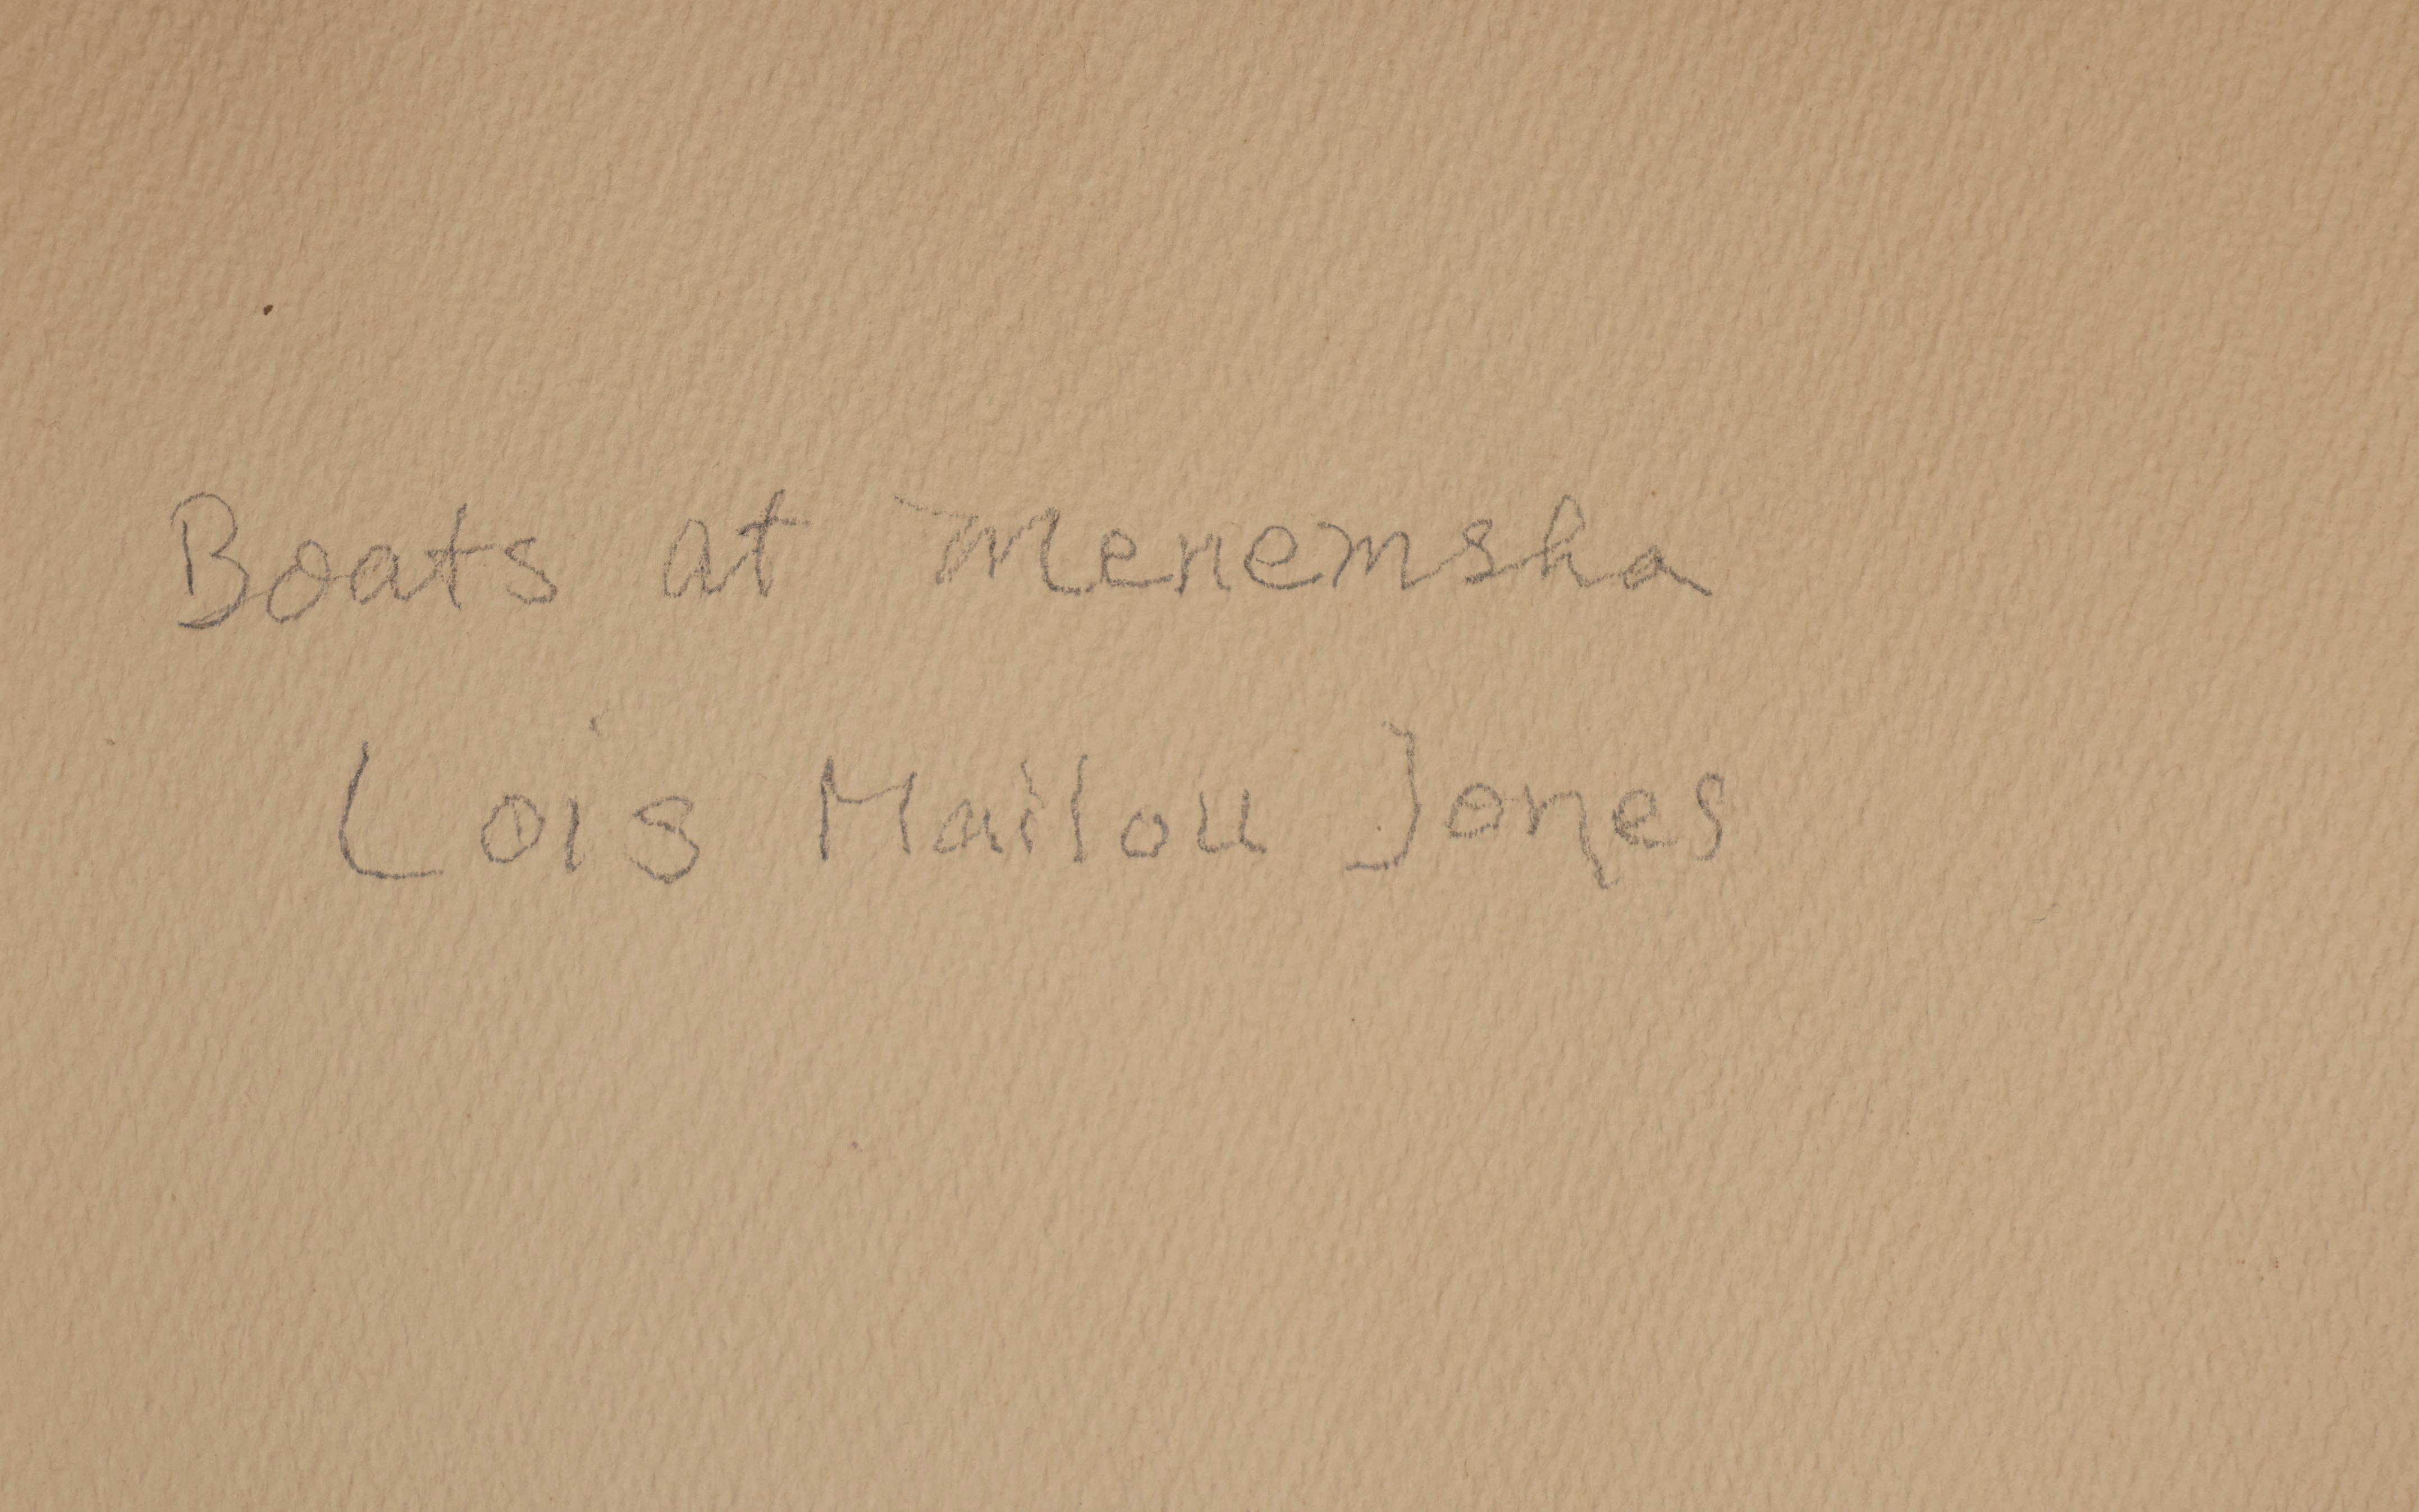 Boats at Menemsha
Lois Mailou Jones